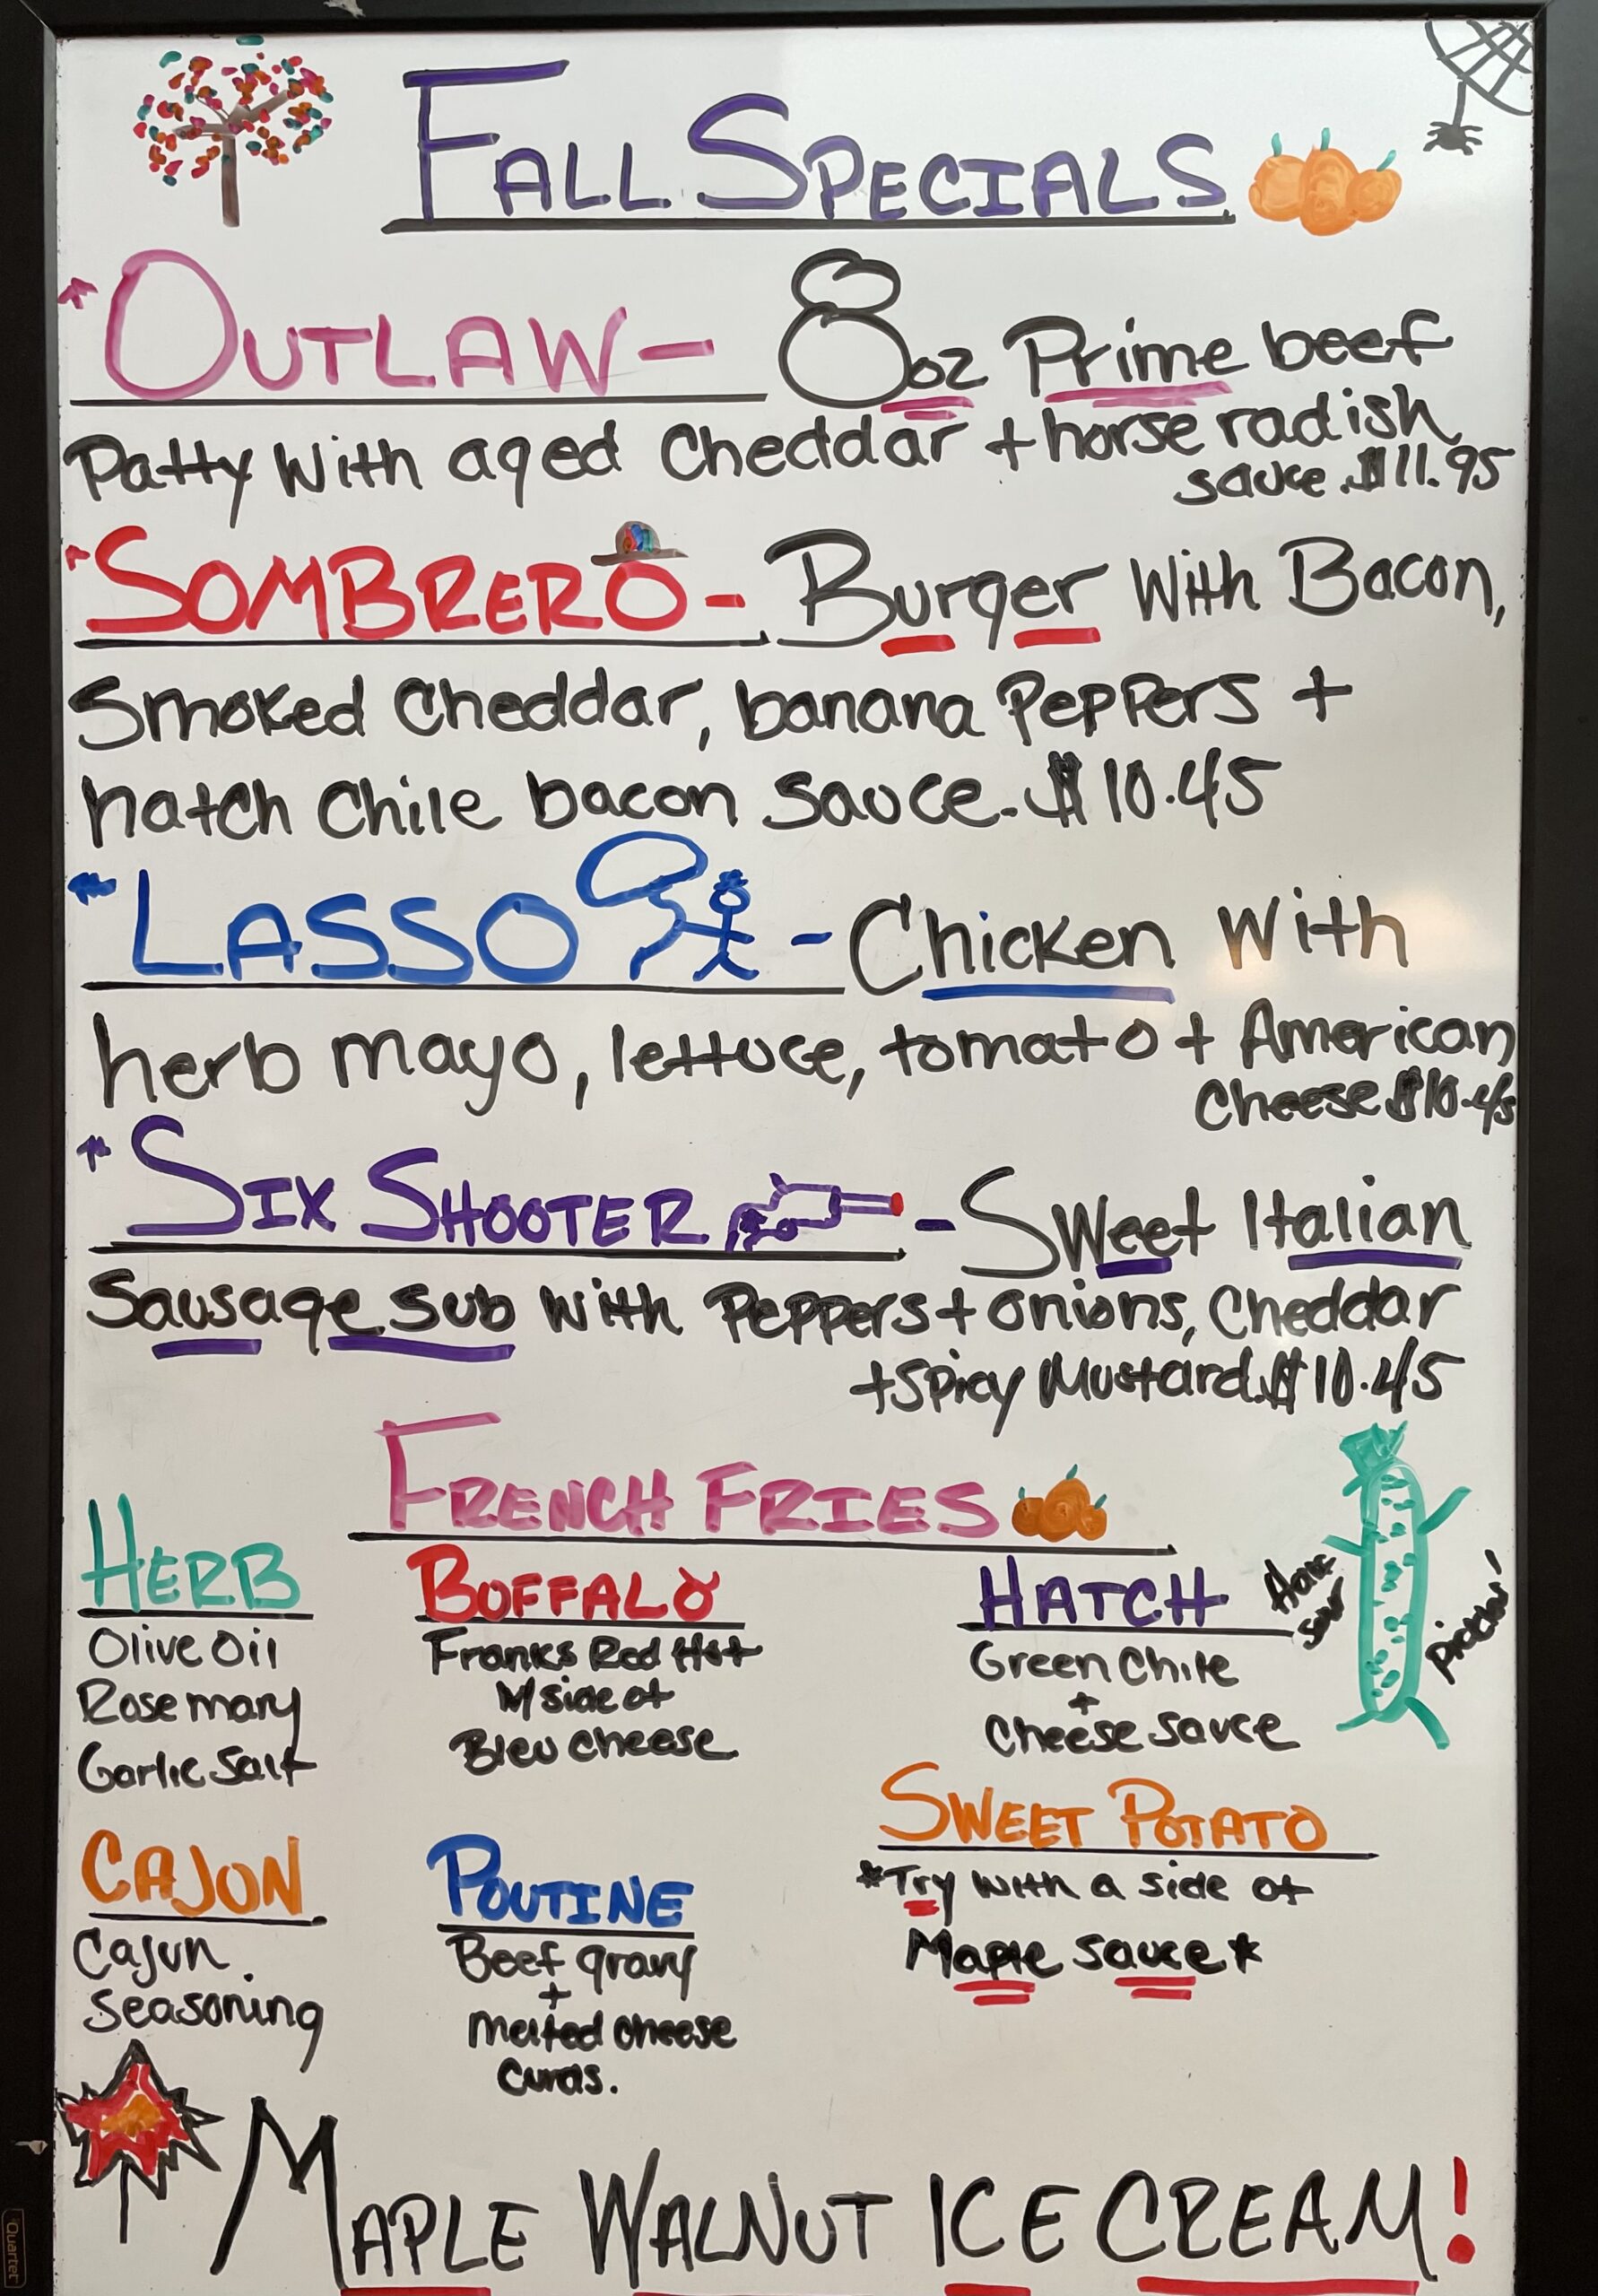 FALL SPECIALS
*OUTLAW- 8oz Prime beef
Patty With aged Cheddar + horse radish
sauce. $11.95
*SOMBRERO- Burger With Bacon,
Smoked Cheddar, banana Peppers +
hatch Chile bacon sauce. $10.45
*LASSO - Chicken With
herb mayo, lettuce, tomato + American
Cheese $10.45
*SIX SHOOTER - Sweet Italian
Sausage sub with Peppers + onions, Cheddar
+ Spicy Mustard. $10.45
FRENCH FRIES
HERB
Olive Oil
Rosemary
Garlic Salt
BUFFALO
Franks Red Hot
W/ side of
Bleu Cheese
HATCH
Green Chile
+
Cheese Sauce
Half
Sour
pickles!
CAJUN
Cajun
Seasoning
POUTINE
Beef gravy
+
Melted cheese
Curds.
SWEET POTATO
*Try with a side of
Maple Sauce*
MAPLE WALNUT ICE CREAM!
Quartet